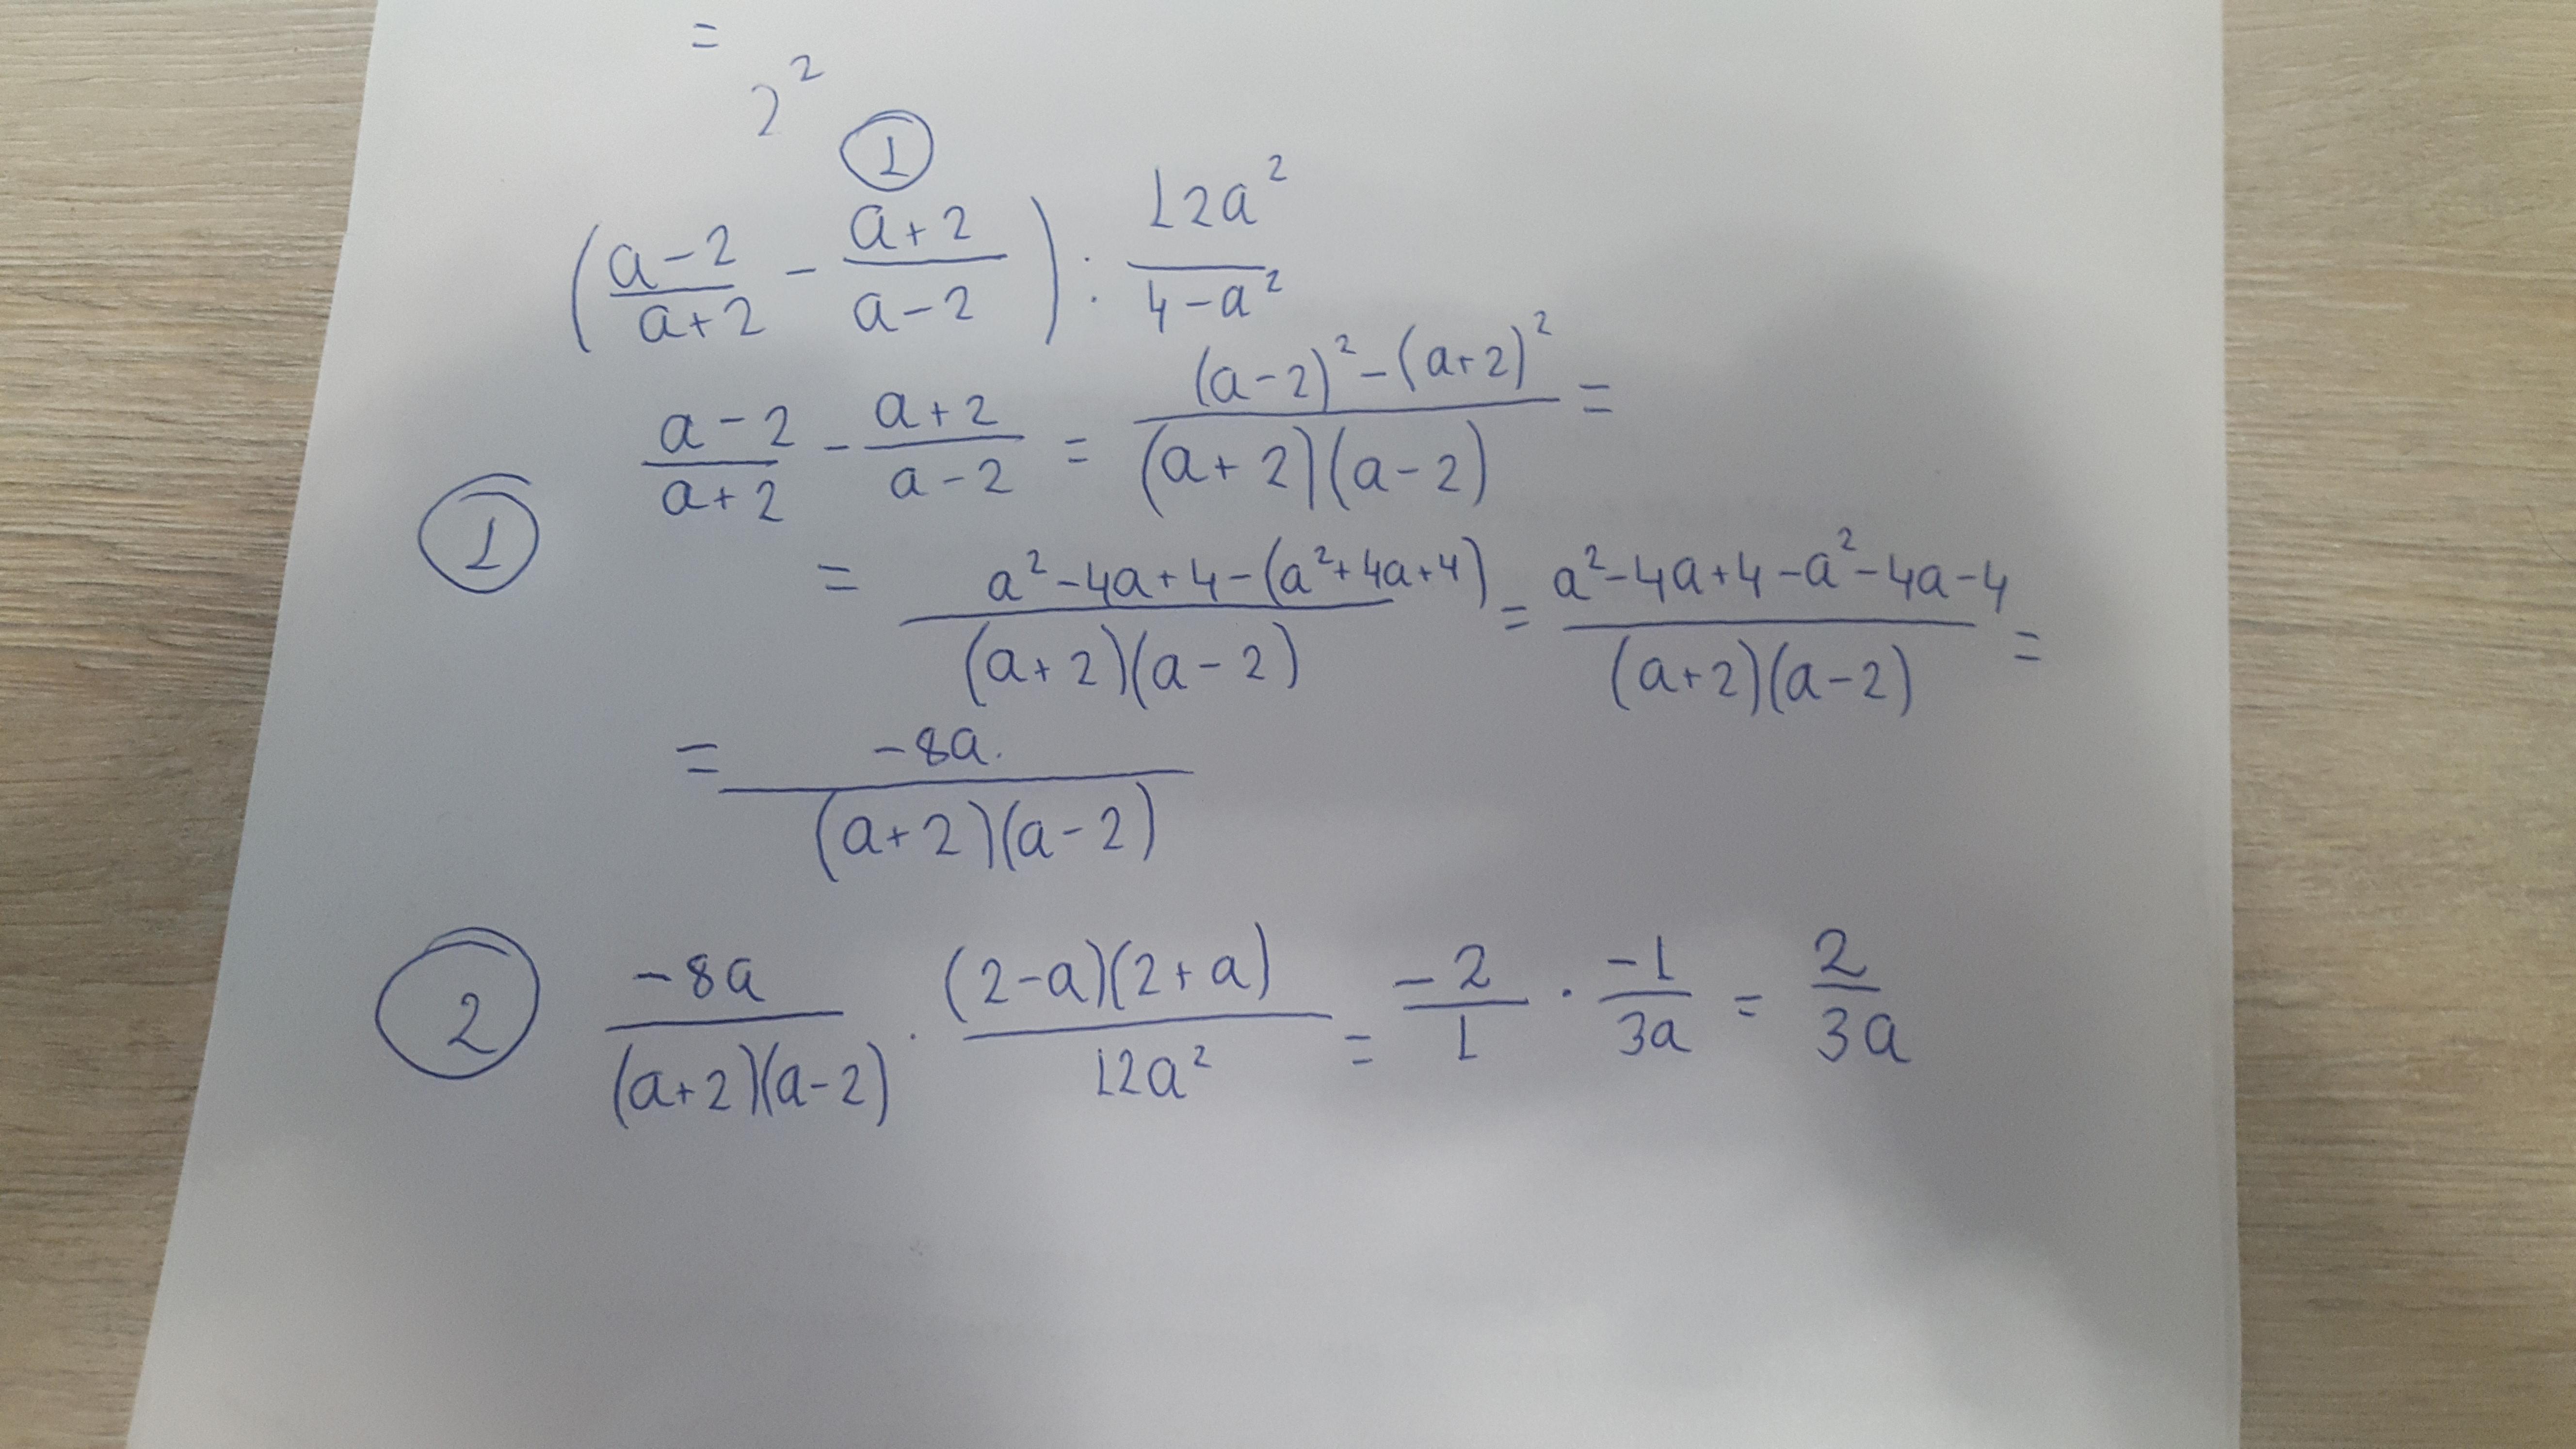 =
2²
①
((a-2)/(a+2) - (a+2)/(a-2)) : 12a²/(4-a²)
① (a-2)/(a+2) - (a+2)/(a-2) = ((a-2)²-(a+2)²)/((a+2)(a-2)) =
= (a²-4a+4-(a²+4a+4))/((a+2)(a-2)) = (a²-4a+4-a²-4a-4)/((a+2)(a-2)) =
= -8a/((a+2)(a-2))
② -8a/((a+2)(a-2)) · ((2-a)(2+a))/(12a²) = -2/1 · -1/(3a) = 2/(3a)